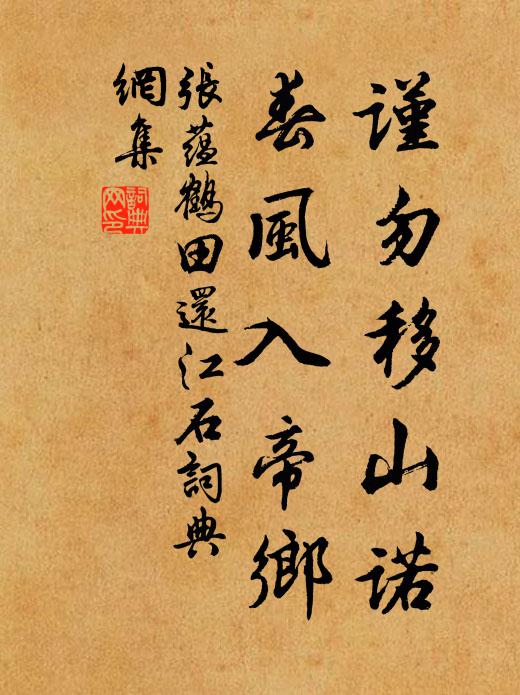 謹勿移山諾
春風入帝鄉
張蘊鶴田還江石詞典
網集
詞典
网印